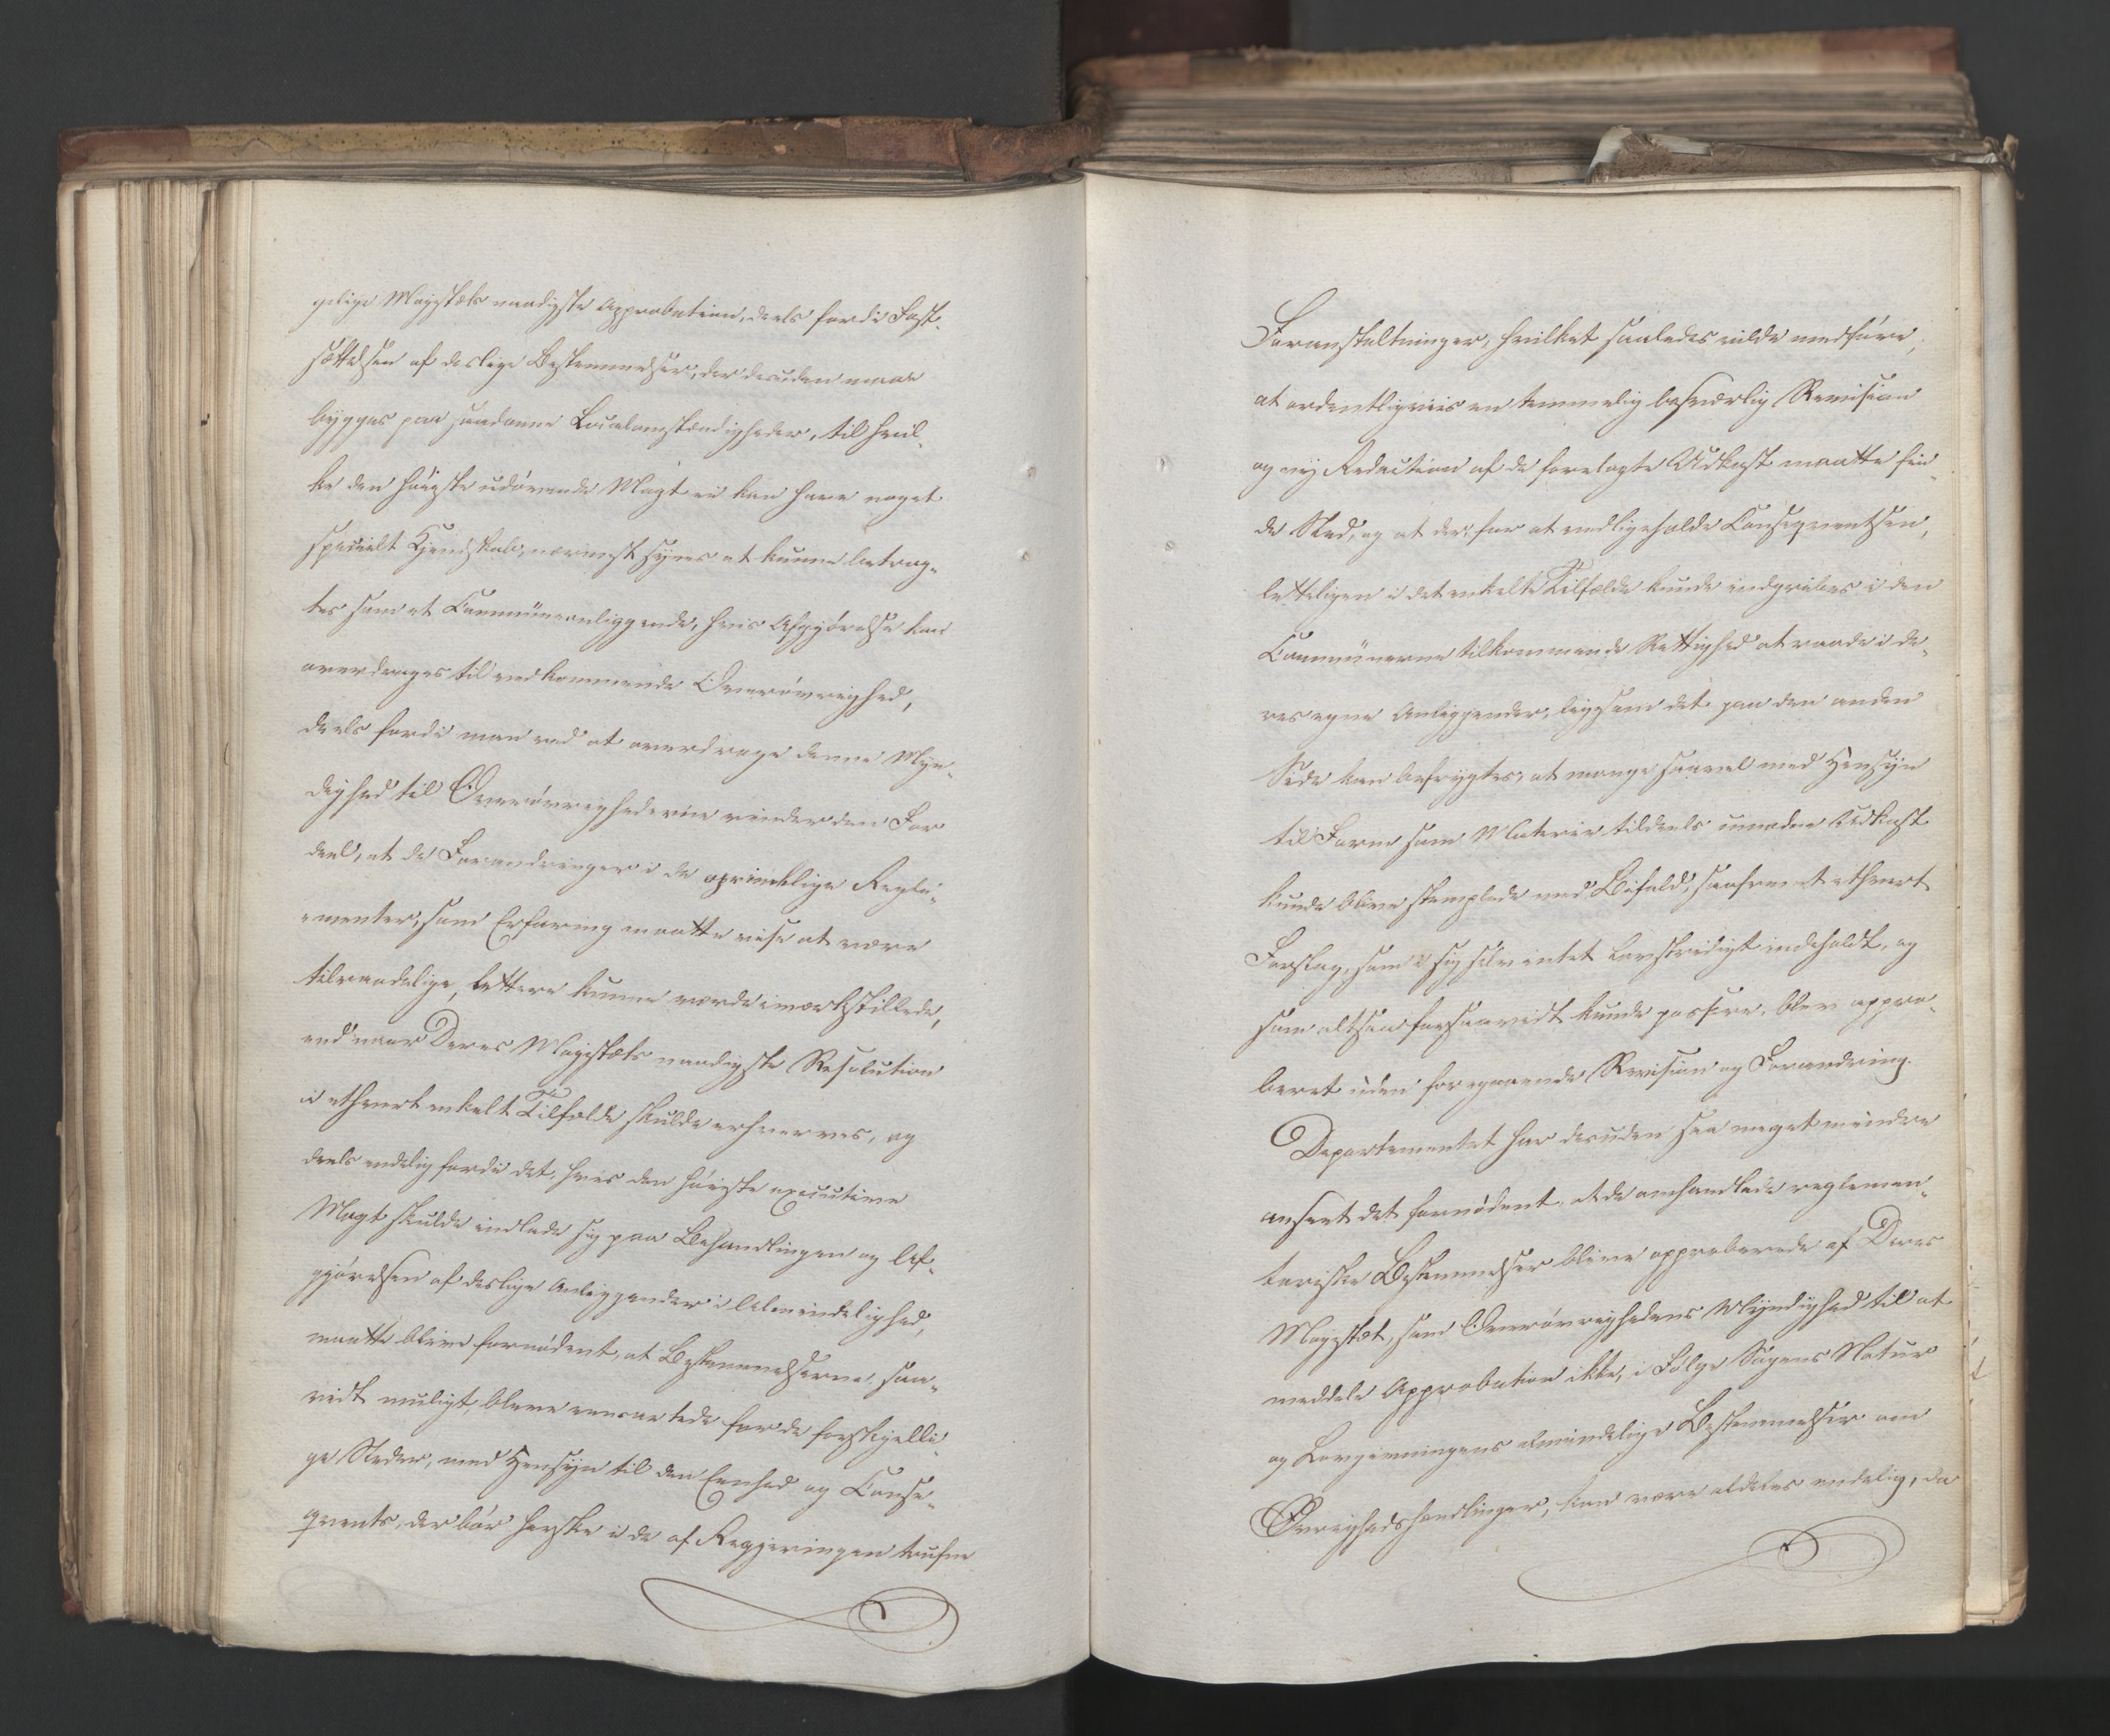 gelige Majestæts naadigste Approbation, deels fordi Fast-
sættelsen af deslige Bestemmelser, der desuden maae
bygges paa saadanne Localomstændigheder, til hvil-
ke den høieste udøvende Magt ei kan have noget
specielt Kjendskab, nærmest synes at kunne betrag-
tes som et Communeanliggende, hvis Afgjørelse kan
overdrages til vedkommende Overøvrighed,
deels fordi man ved at overdrage denne Myn-
dighed til Overøvrighederne vinder den For
deel, at de Forandringer i de oprindelige Regle-
-menter, som Erfaring maatte vise at være
tilraadelige, lettere kunne vorde iværkstillede,
end naar Deres Majestæts naadigste Resolution
i ethvert enkelt Tilfælde skulde erhverves, og
deels endelig fordi det, hvis den høieste executive
Magt skulde indlade sig paa Behandlingen og Af-
gjørelsen af deslige Anliggender i Almindelighed,
maatte blive fornødent, at Bestemmelserne, saa-
vidt muligt, bleve eensartede for de forskjelli-
ge Steder, med Hensyn til den Eenhed og Conse-
qvents, der bør herske i de af Regjeringen trufne
Foranstaltninger, hvilket saaledes vilde medføre,
at ordentligviis en temmelig besværlig Revision
og ny Redaction af de forelagte Udkast maatte fin-
de Sted, og at der for at vedligeholde Conseqventsen,
letteligen i det enkelte Tilfælde kunde indgribes i den
Communerne tilkommende Rettighed at raade i de-
res egne Anliggender, ligesom det paa den anden
Side kan befrygtes, at mange saavel med Hensyn
til Form som Materie tildeels umodne Udkast
kunde blive stemplede med Bifald, saafremt ethvert
Forslag, som i sig selv intet Lovstridigt indeholdt, og
som altsaa forsaavidt kunde passere, blev appro-
beret uden foregaaende Revision og Forandring.
Departementet har desuden saa meget mindre
anseet det fornødent, at de omhandlede reglemen-
tariske Bestemmelser bleve approberede af Deres
Majestæt, som Overøvrighedens Myndighed til at
meddele Approbation ikke, i Følge Sagens Natur
og Lovgivningens almindelige Bestemmelser om
Øvrighedshandlinger, kan være aldeles endelig, da